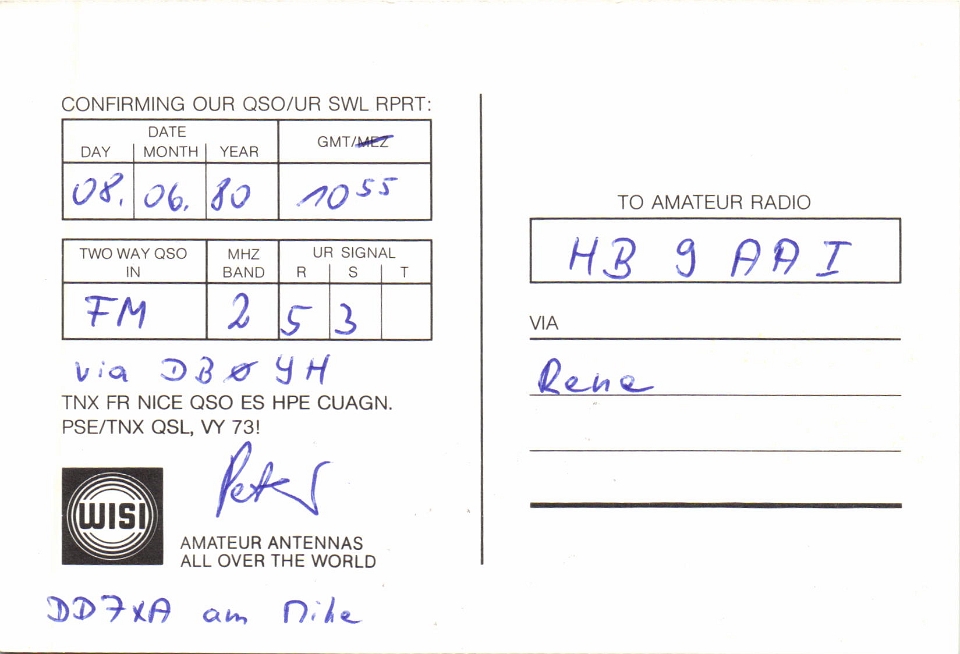 CONFIRMING OUR QSO/UR SWL RPRT:
DATE
DAY MONTH YEAR GMT/MEZ
08. 06. 80 10 55
TWO WAY QSO IN MHZ BAND UR SIGNAL
R S T
FM 2 5 3
via DBØYH
TNX FR NICE QSO ES HPE CUAGN.
PSE/TNX QSL, VY 73!
Peter
WISI
AMATEUR ANTENNAS
ALL OVER THE WORLD
DD7XA am Mike
TO AMATEUR RADIO
HB 9 AAI
VIA
Rene